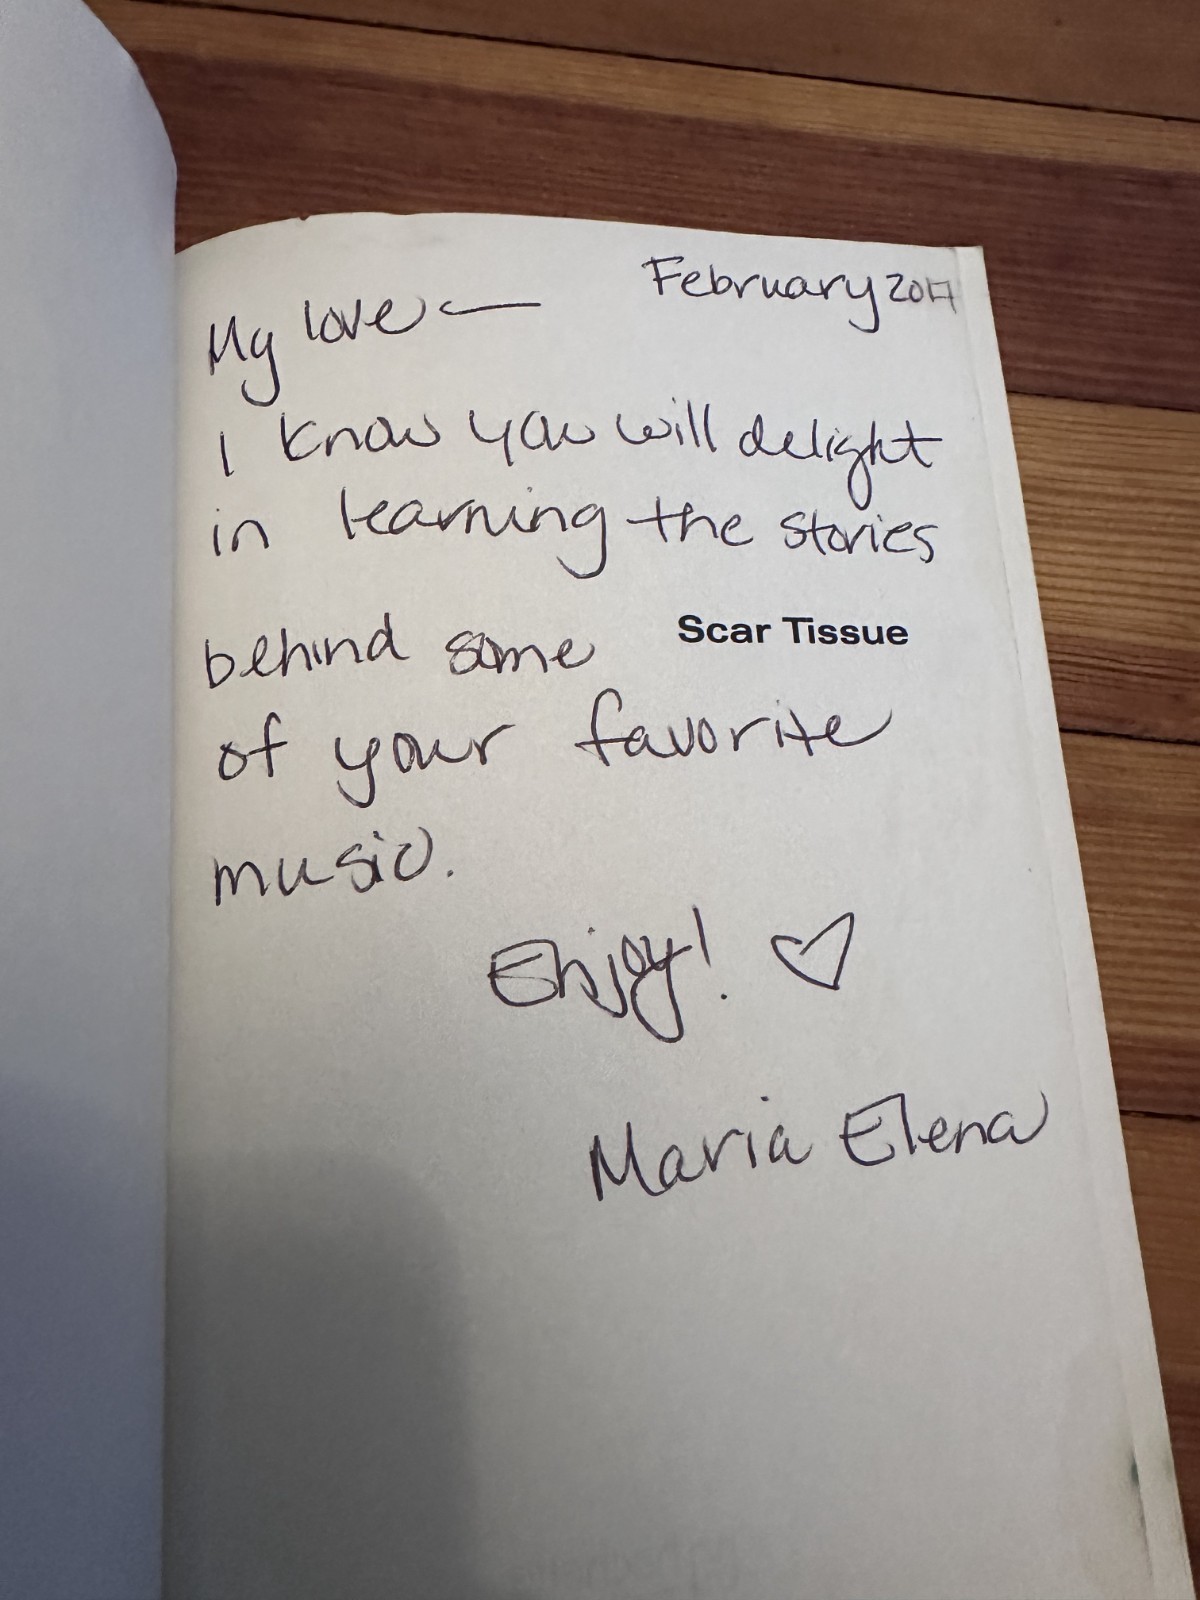 February 2017
My love —
I know you will delight
in learning the stories
behind some
Scar Tissue
of your favorite
music.
Enjoy! ♡
Maria Elena